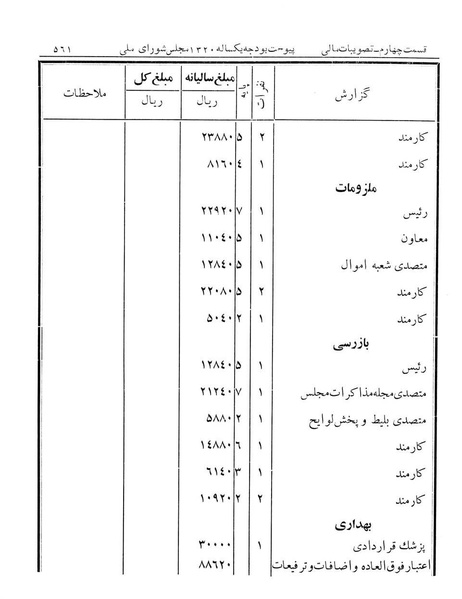 قسمت چهارم ـ تصویبات مالی پیوست بودجه یکساله ۱۳۲۰ مجلس شورای ملی ۵۶۱
گزارش نفرات پایه مبلغ سالیانه مبلغ کل ملاحظات
ریال ریال
کارمند ۲ ۵ ۲۳۸۸۰
کارمند ۱ ٤ ۸۱۶۰
ملزومات
رئیس ۱ ۷ ۲۲۹۲۰
معاون ۱ ۵ ۱۱۰٤۰
متصدی شعبه اموال ۱ ۵ ۱۲۸٤۰
کارمند ۲ ۵ ۲۲۰۸۰
کارمند ۱ ۲ ۵۰٤۰
بازرسی
رئیس ۱ ۵ ۱۲۸٤۰
متصدی مجله مذاکرات مجلس ۱ ۷ ۲۱۲٤۰
متصدی بلیط و پخش لوایح ۱ ۲ ۵۸۸۰
کارمند ۱ ۶ ۱٤۸۸۰
کارمند ۱ ۳ ۶۱٤۰
کارمند ۲ ۲ ۱۰۹۲۰
بهداری
پزشك قراردادی ۱ ۳۰۰۰۰
اعتبار فوق العاده و اضافات و ترفیعات ۸۸۶۲۰